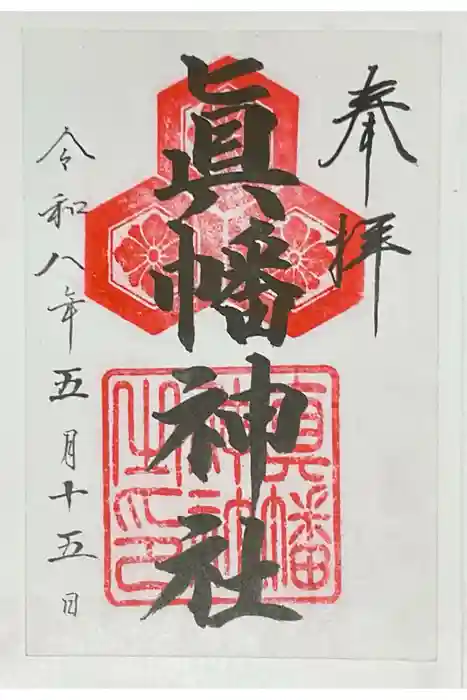 奉拝
眞幡神社
眞幡
神社
之印
令和八年五月十五日